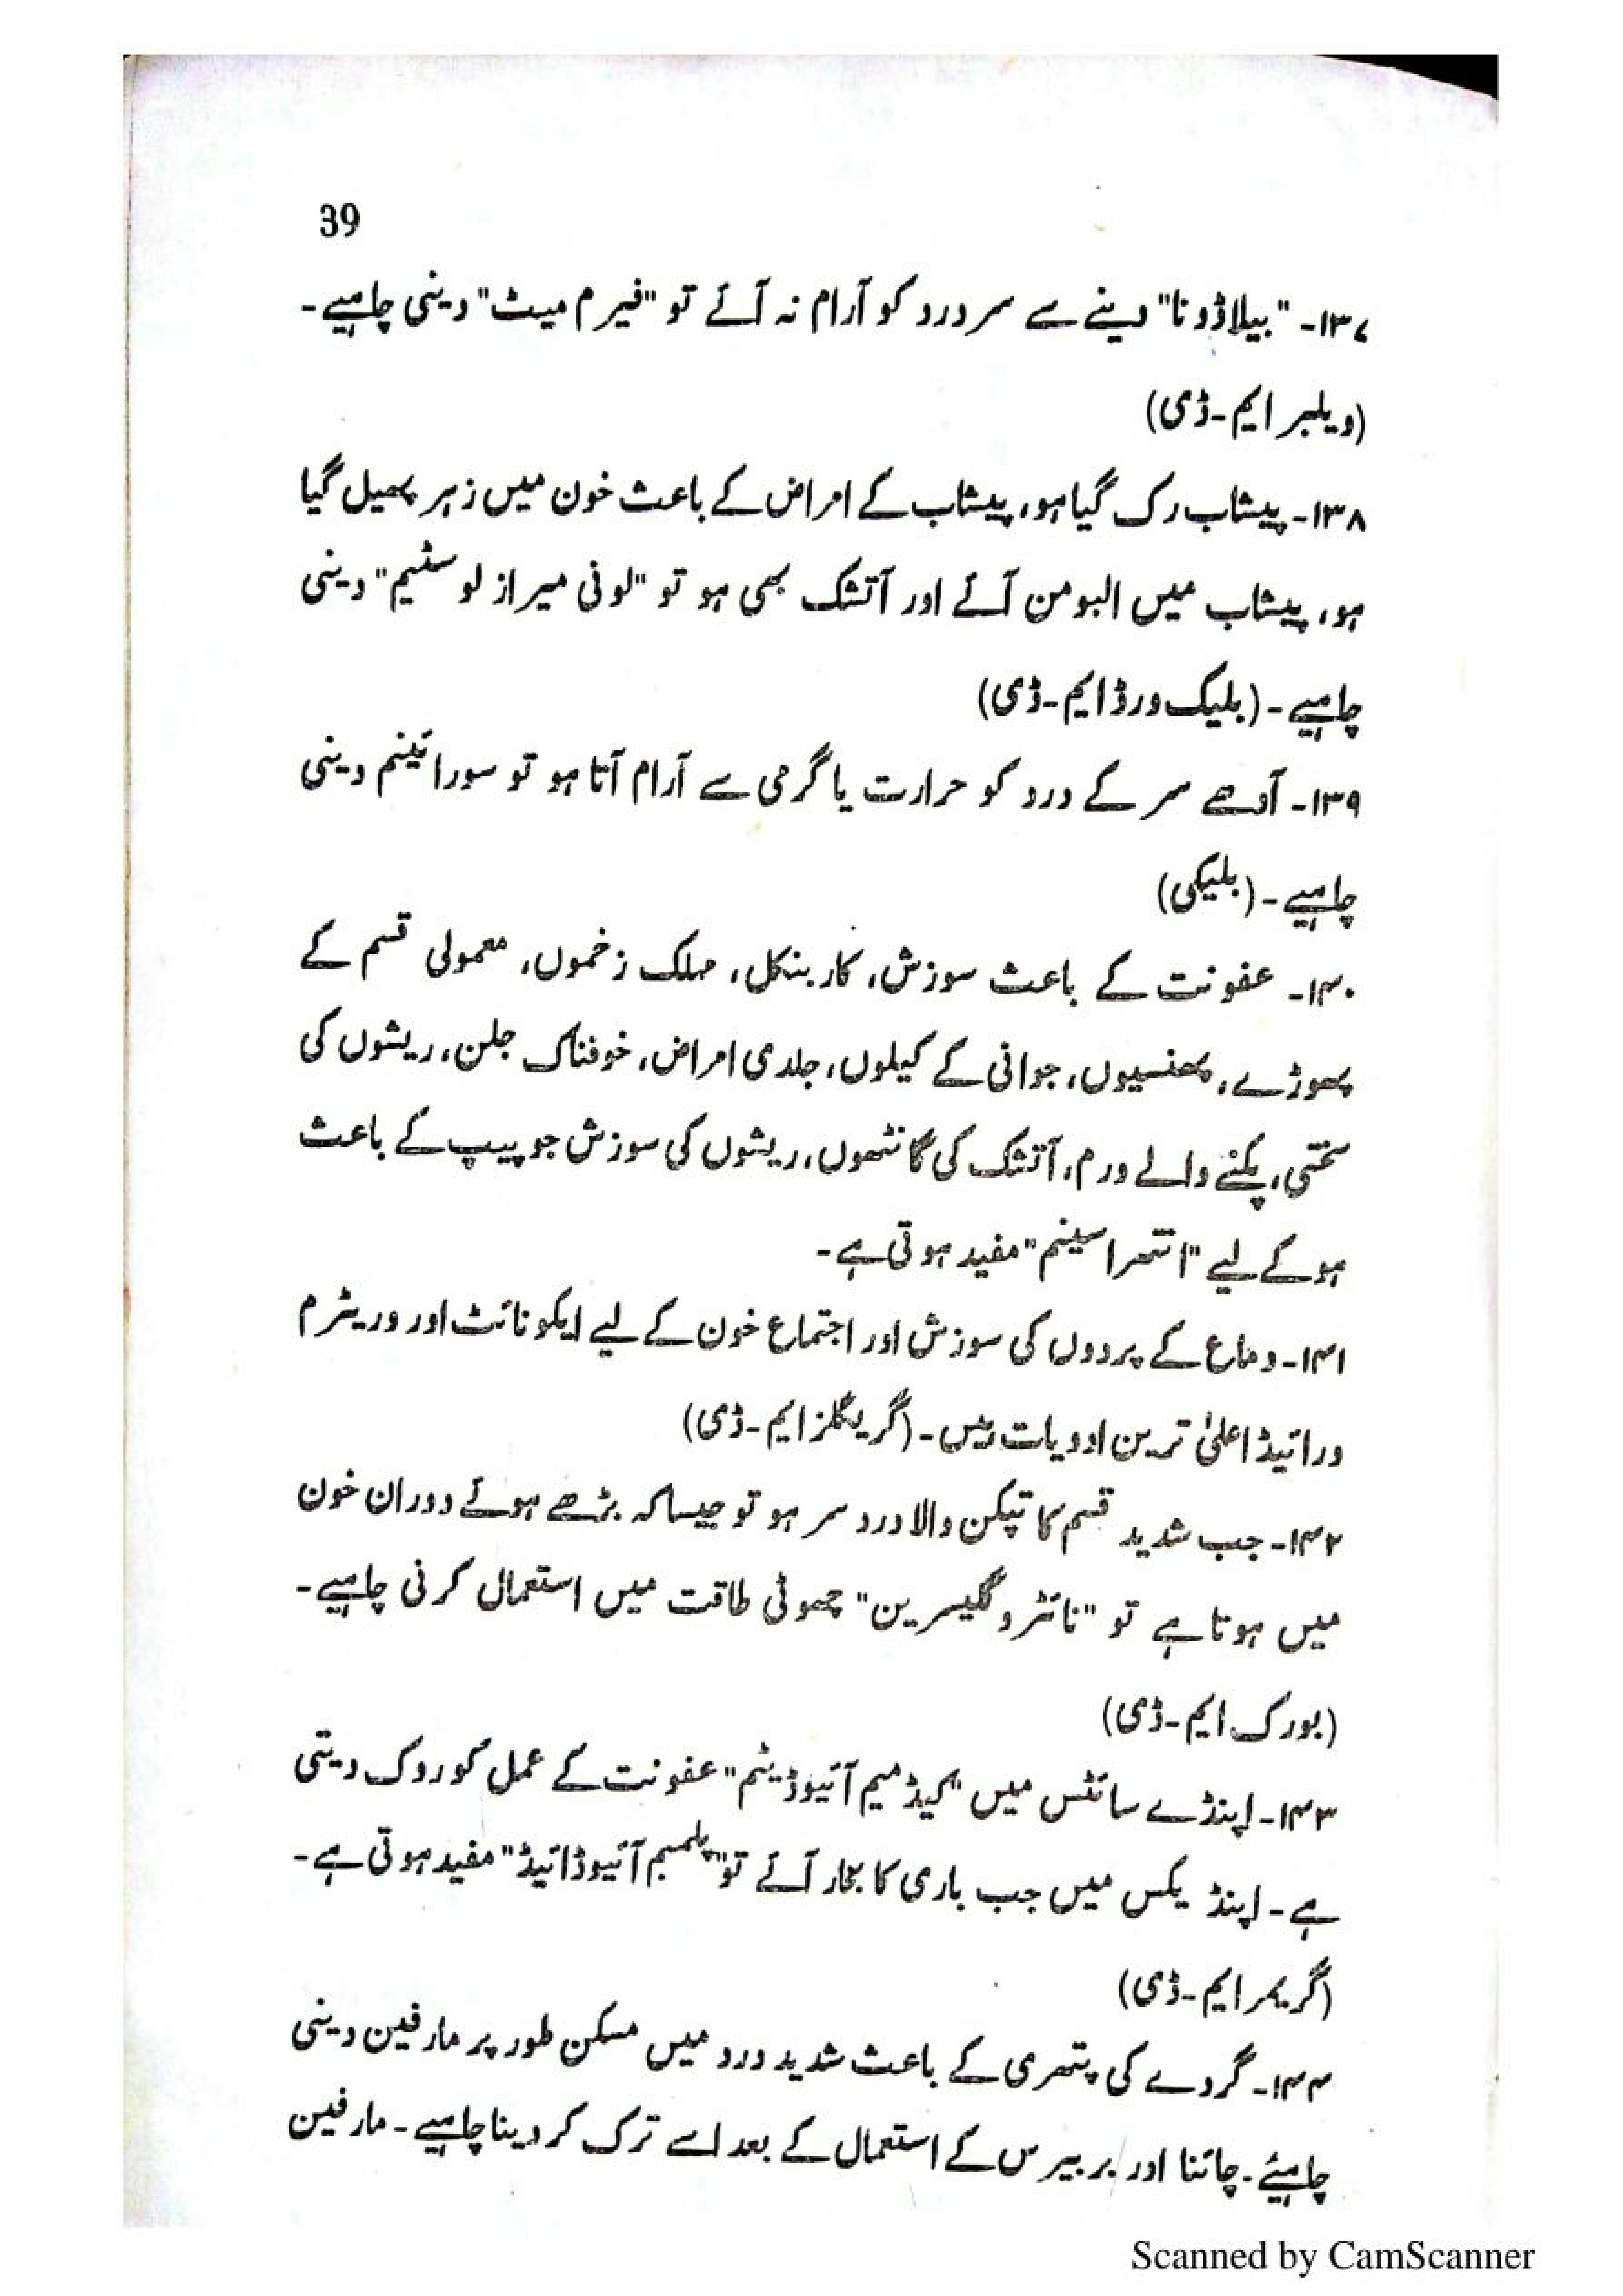 39
۱۳۷- "بیلاڈونا" دینے سے سر درد کو آرام نہ آئے تو "فیرم میٹ" دینی چاہیے۔
(ویلبر ایم-ڈی)
۱۳۸- پیشاب رک گیا ہو، پیشاب کے امراض کے باعث خون میں زہر پھیل گیا
ہو، پیشاب میں البومن آئے اور آتشک بھی ہو تو "لونی میراز لوسٹیم" دینی
چاہیے۔ (بلیک ورڈ ایم-ڈی)
۱۳۹- آدھے سر کے درد کو حرارت یا گرمی سے آرام آتا ہو تو سورائینم دینی
چاہیے۔ (بلیکی)
۱۴۰- عفونت کے باعث سوزش، کاربنکل، مہلک زخموں، معمولی قسم کے
پھوڑے، پھنسیوں، جوانی کے کیلوں، جلدی امراض، خوفناک جلن، ریشوں کی
سختی، پکنے والے ورم، آتشک کی گانٹھوں، ریشوں کی سوزش جو پیپ کے باعث
ہو کے لیے "انتھراسینم" مفید ہوتی ہے۔
۱۴۱- دماغ کے پردوں کی سوزش اور اجتماع خون کے لیے ایکونائٹ اور وریٹرم
ورائیڈ اعلیٰ ترین ادویات ہیں۔ (گریگلز ایم-ڈی)
۱۴۲- جب شدید قسم کا تپکن والا درد سر ہو تو جیسا کہ بڑھے ہوئے دوران خون
میں ہوتا ہے تو "نائٹرو گلیسرین" چھوٹی طاقت میں استعمال کرنی چاہیے۔
(بورک ایم-ڈی)
۱۴۳- اپنڈے سائٹس میں "کیڈمیم آئیوڈیٹم" عفونت کے عمل کو روک دیتی
ہے۔ اپنڈیکس میں جب باری کا بخار آئے تو "پلمبم آئیوڈائیڈ" مفید ہوتی ہے۔
(گریمر ایم-ڈی)
۱۴۴- گردے کی پتھری کے باعث شدید درد میں مسکن طور پر مارفین دینی
چاہیئے۔ چائنا اور بربیرس کے استعمال کے بعد اسے ترک کر دینا چاہیے۔ مارفین
Scanned by CamScanner